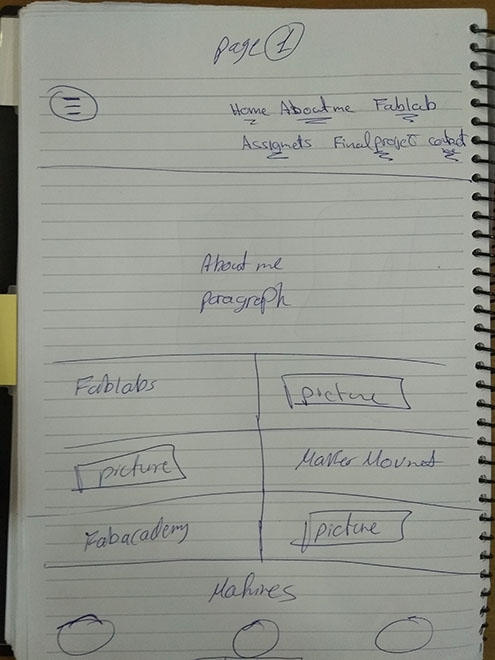 page 1
Home About me Fablab
Assigmets Final project contact
About me
paragraph
Fablabs
picture
picture
Maker Movmet
Fabacademy
picture
Mahines